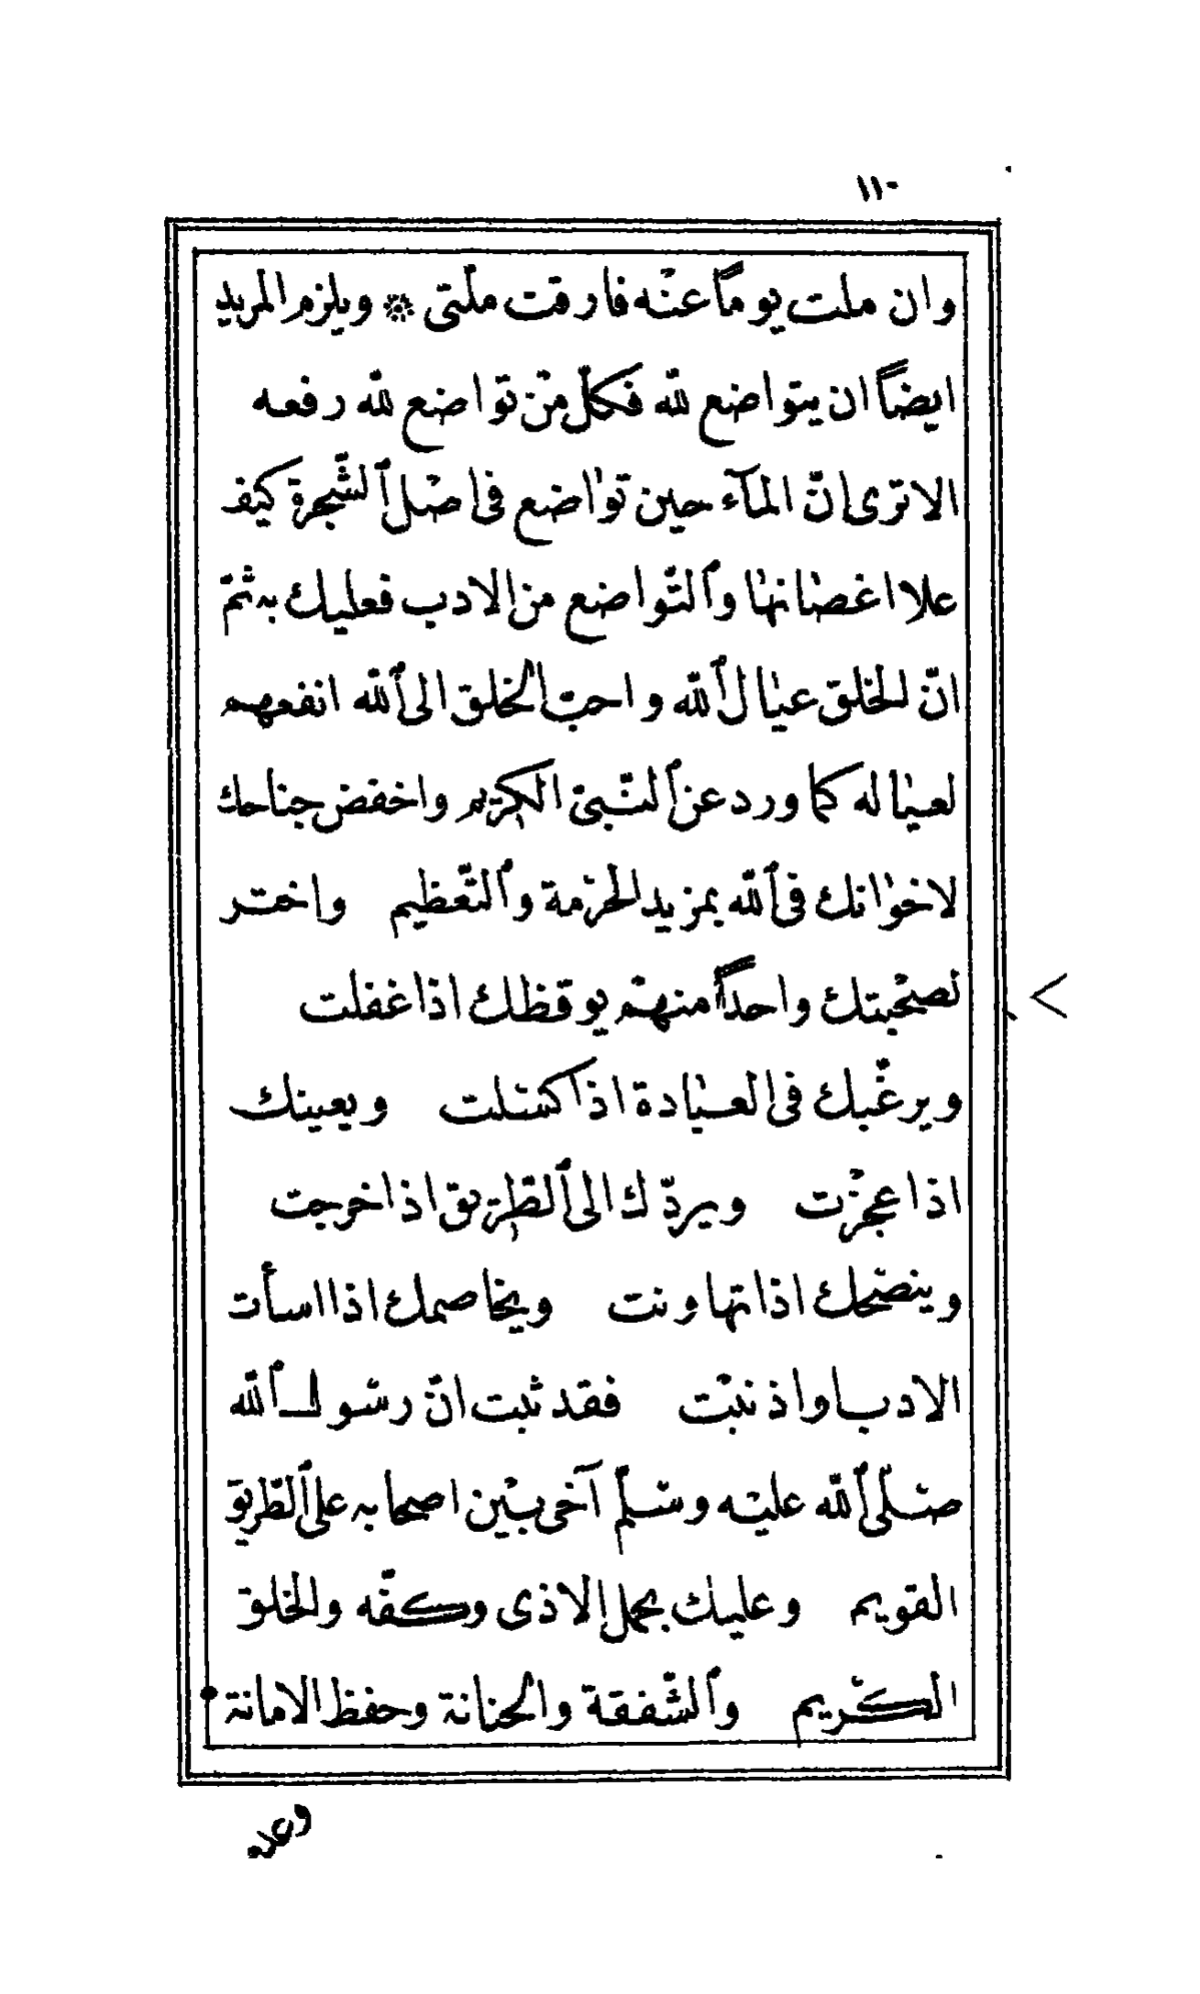 ١١٠
وان ملت يوماً عنه فارقت ملّتى ۞ ويلزم المريد
ايضاً ان يتواضع لله فكلّ من تواضع لله رفعه
الا ترى انّ المآء حين تواضع فى اصل الشّجرة كيف
علا اغصانها والتّواضع من الادب فعليك به ثمّ
انّ الخلق عيال الله واحبّ الخلق الى الله انفعهم
لعياله كما ورد عن النّبىّ الكريم واخفض جناحك
لاخوانك فى الله بمزيد الحرمة والتّعظيم واختر
لصحبتك واحداً منهم يوقظك اذا غفلت
ويرغّبك فى العبادة اذا كسلت ويعينك
اذا عجزت ويردّك الى الطّريق اذا خرجت
وينصحك اذا تهاونت ويخاصمك اذا اسأت
الادب او اذنبت فقد ثبت انّ رسول الله
صلّى الله عليه وسلّم آخى بين اصحابه على الطّريق
القويم وعليك بحمل الاذى وكفّه والخلق
الكريم والشّفقة والحنانة وحفظ الامانة